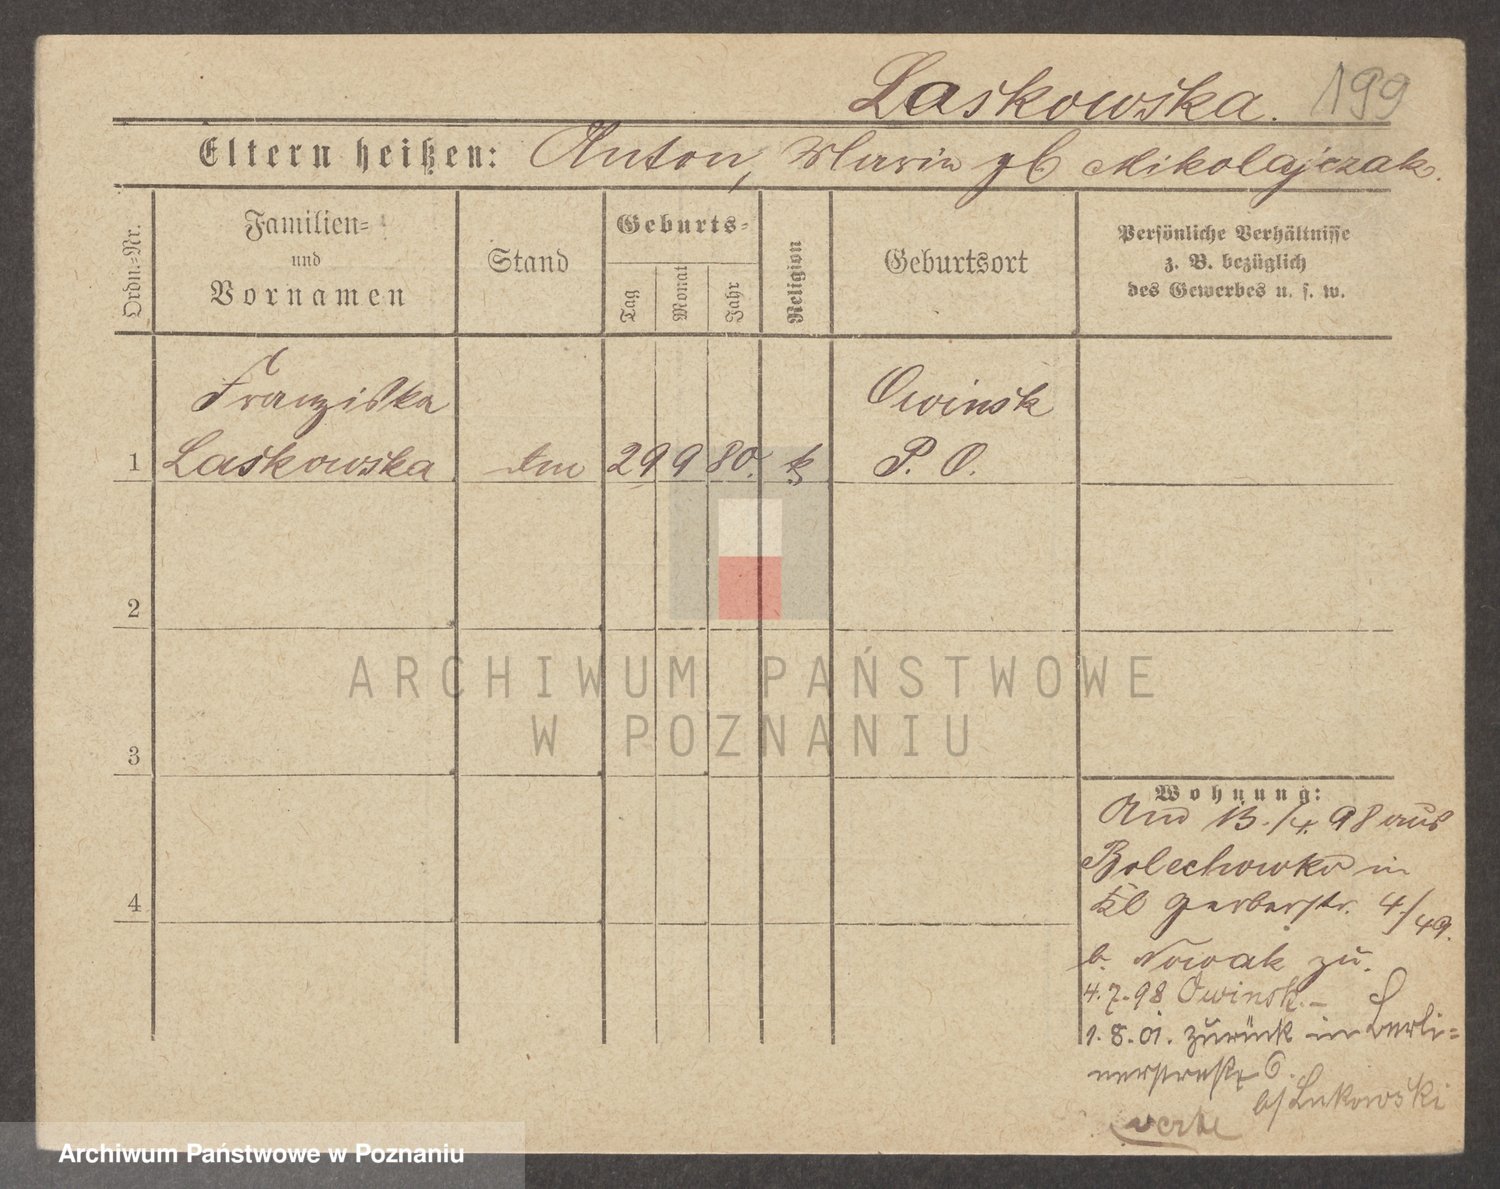 Laskowska. 199
Eltern heißen: Anton, Maria gb. Mikolajczak.
Ordn.-Nr.
Familien-
und
Vornamen
Stand
Geburts-
Tag
Monat
Jahr
Religion
Geburtsort
Persönliche Verhältnisse
z. B. bezüglich
des Gewerbes u. s. w.
Franziska Owinsk
1 Laskowska 29 9 80. k P. O.
2
3
4
ARCHIWUM PAŃSTWOWE
W POZNANIU
Wohnung:
13./4. 98 aus
Bolechowko in
Kl Gerberstr. 4/
b. Nowak zu.
4.7.98 Owinsk.-
1.8.01. zurück in Berli-
nerstraße 6.
b/Lukowski
verte
Archiwum Państwowe w Poznaniu